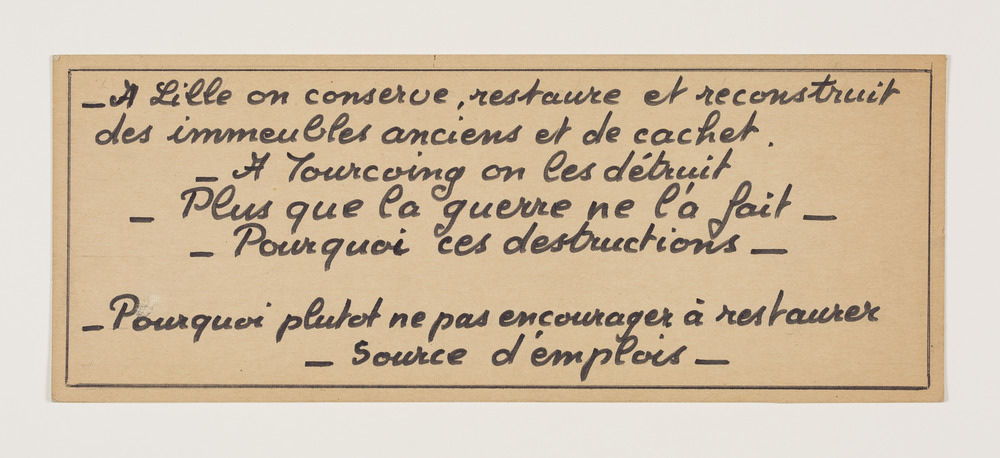 _ A Lille on conserve, restaure et reconstruit
des immeubles anciens et de cachet.
_ A Tourcoing on les détruit
_ Plus que la guerre ne l'a fait _
_ Pourquoi ces destructions _
_ Pourquoi plutot ne pas encourager à restaurer
_ Source d'emplois _